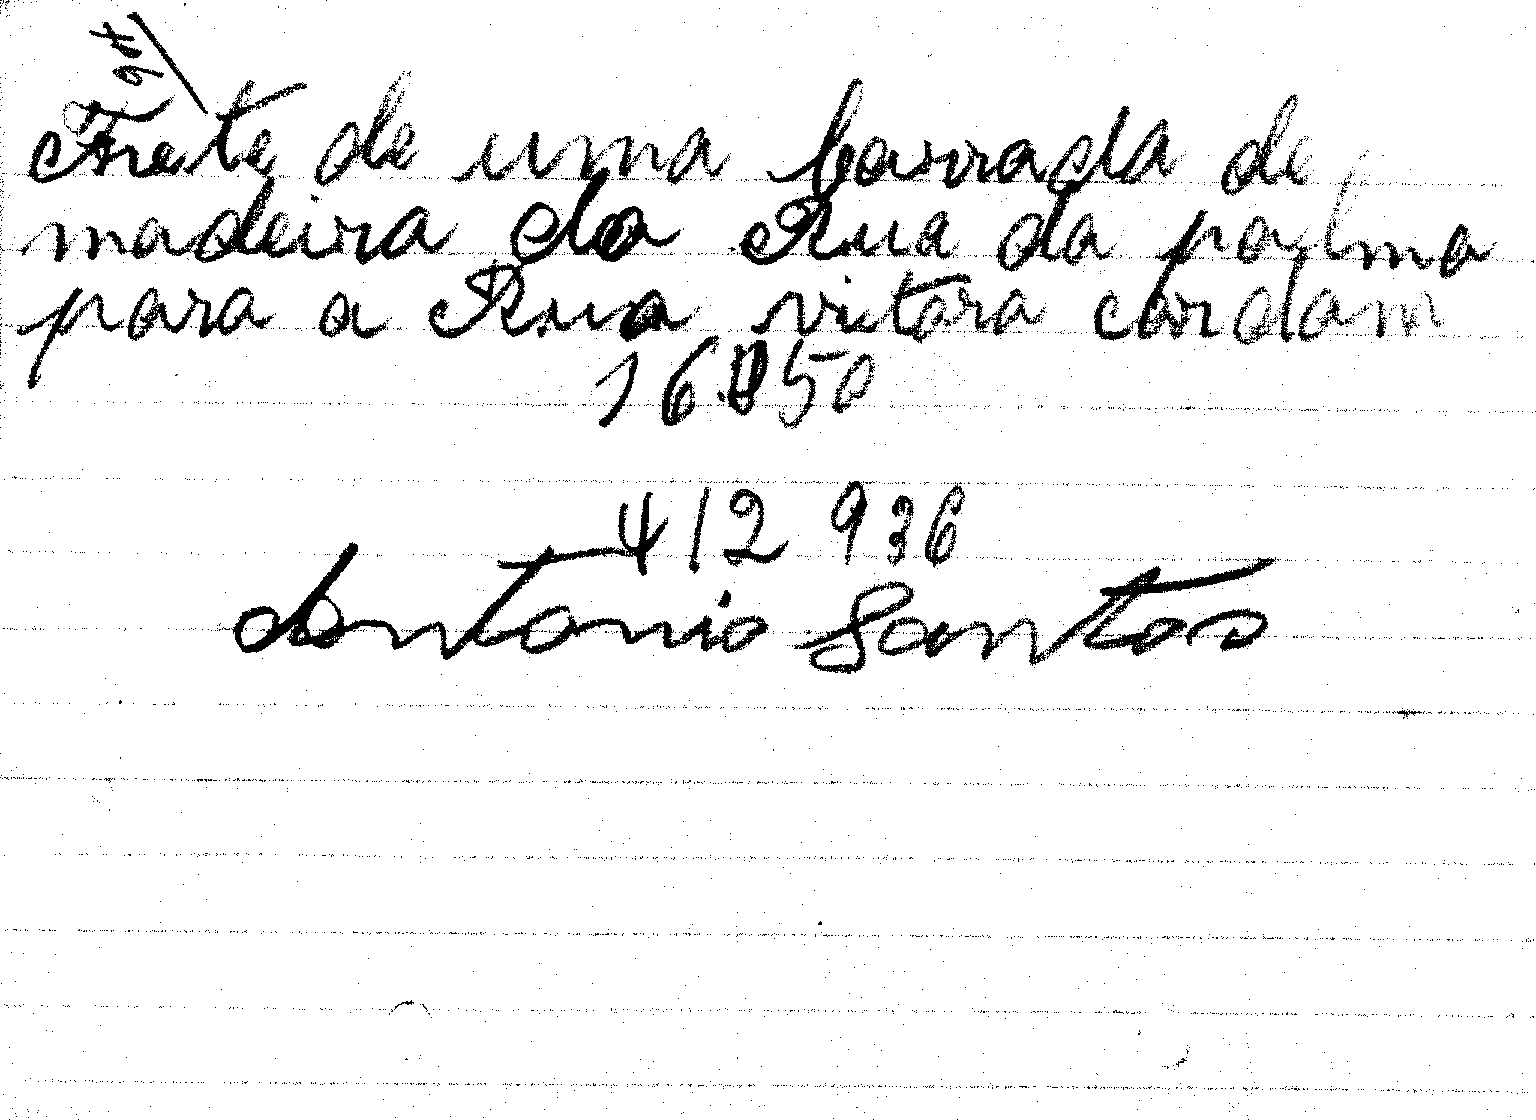 Frete de uma carrada de
madeira da Rua da palma
para a Rua vitora cordam
16.050
412 936
Antonio Santos